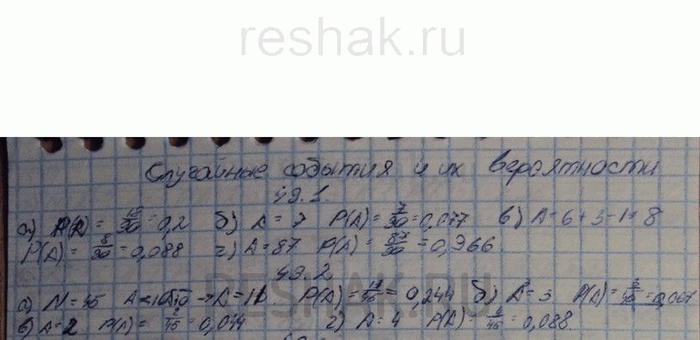 reshak.ru
Случайные события и их вероятности
49.1.
а) P(A) = 18/90 = 0,2 б) A = 7 P(A) = 7/90 = 0,077 в) A = 6 + 3 - 1 = 8
P(A) = 8/90 = 0,088 г) A = 87 P(A) = 87/90 = 0,966
49.2.
а) N = 45 A = 11 P(A) = 11/45 = 0,244 б) A = 3 P(A) = 3/45 = 0,067
в) A = 2 P(A) = 2/45 = 0,044 г) A = 4 P(A) = 4/45 = 0,088
RESHAK.RU